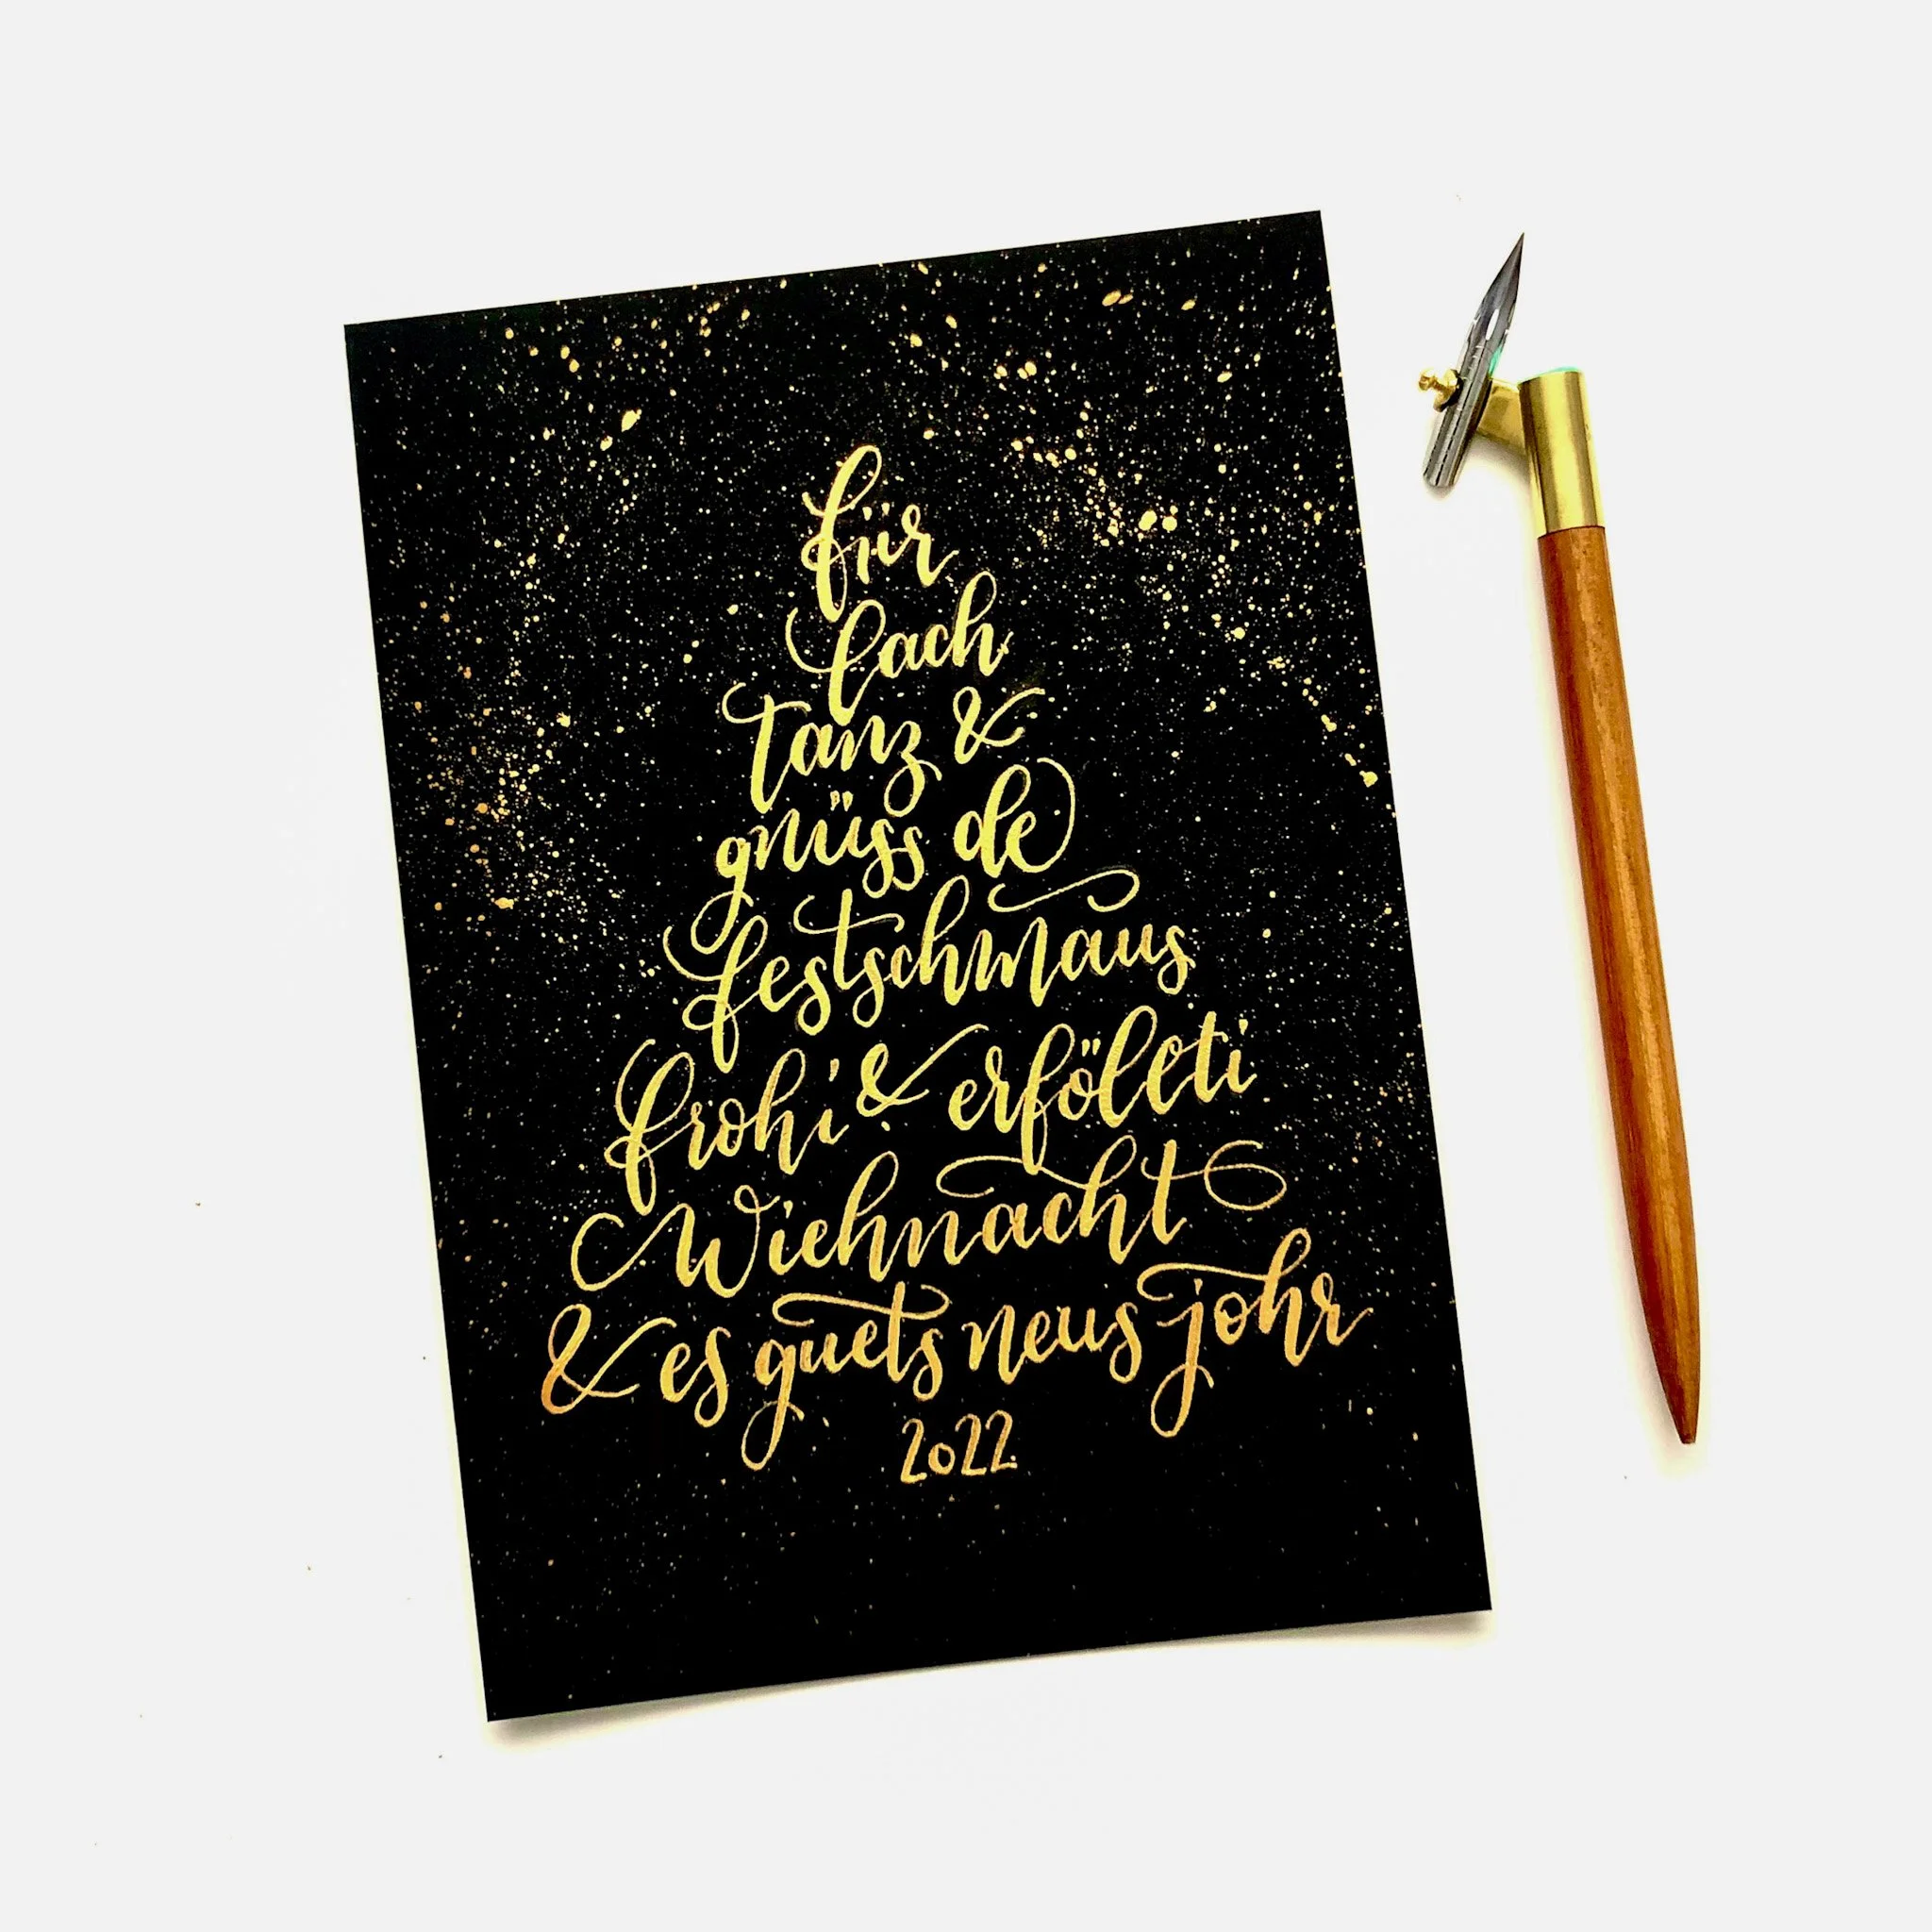 fiir
lach
tanz &
gnüss de
festschmaus
frohi & erföllti
Wiehnacht
& es guets neus johr
2022